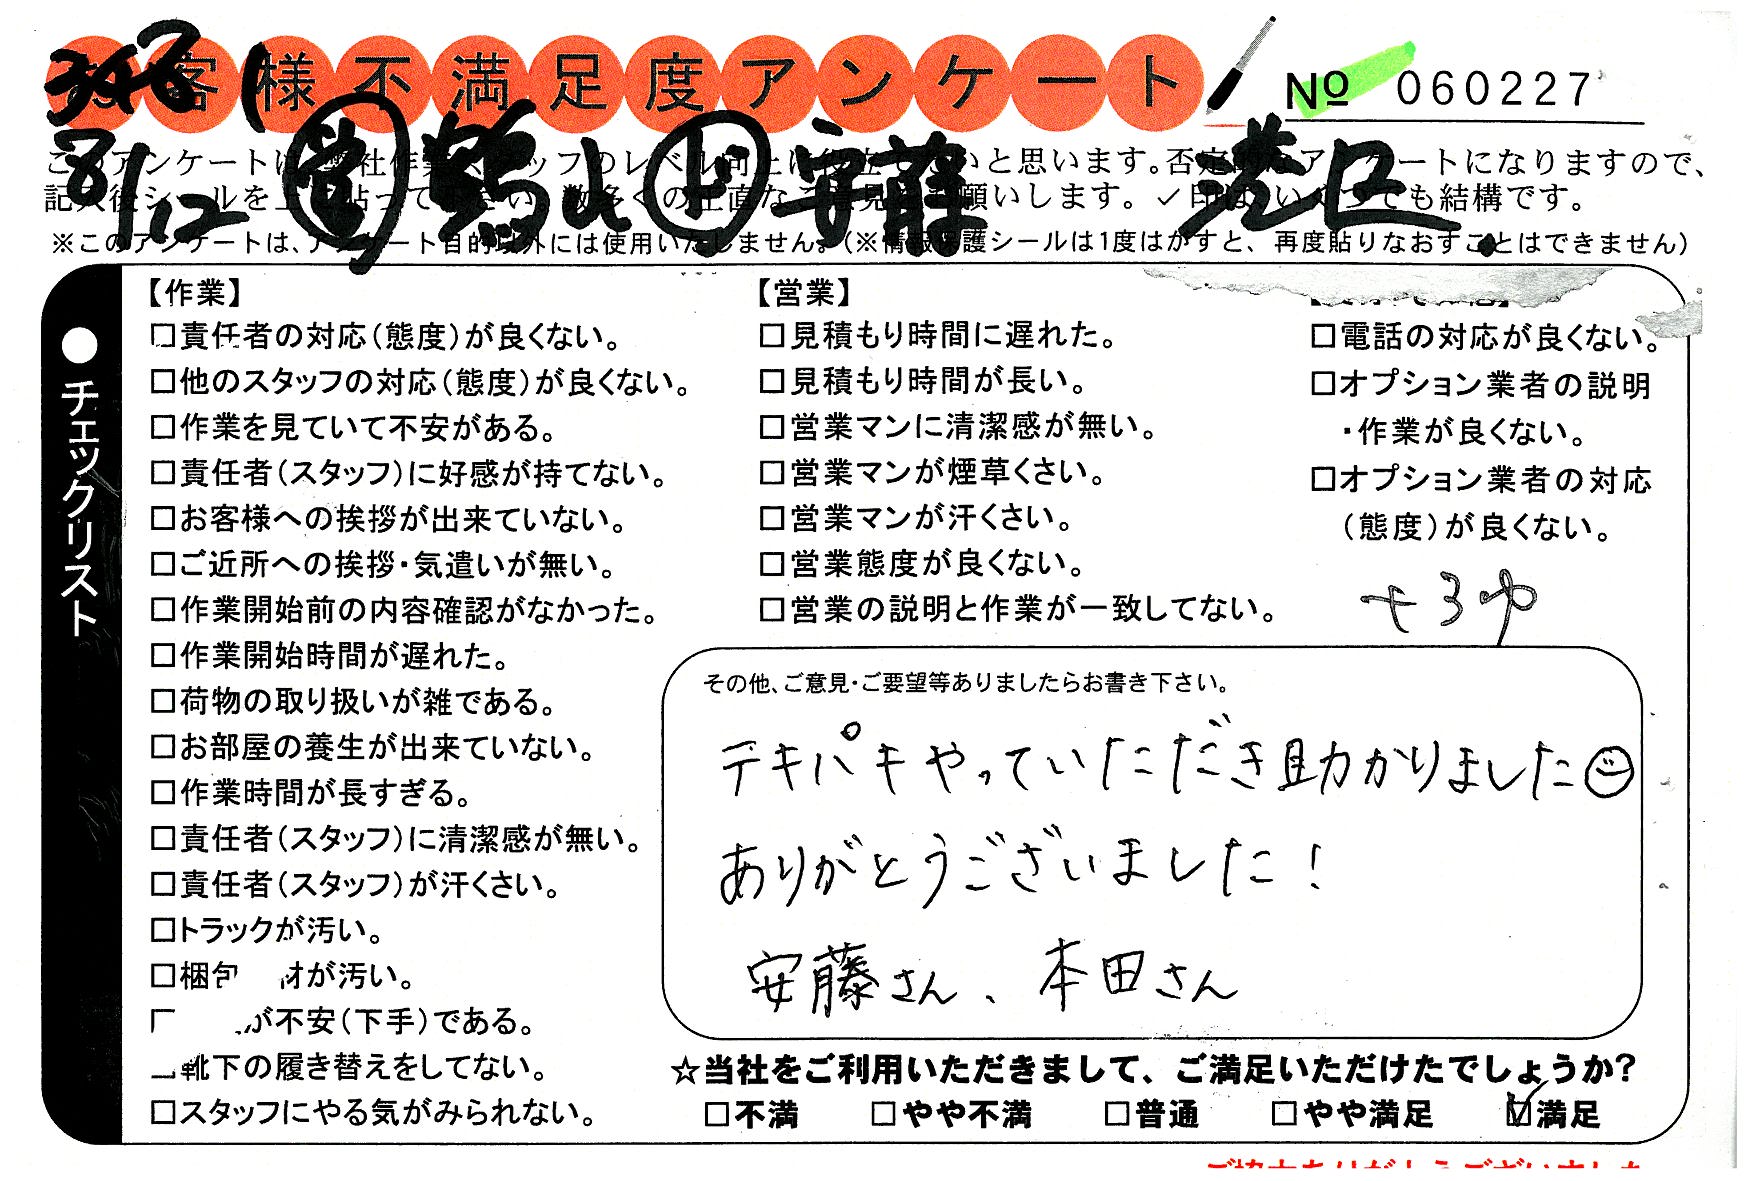 お客様不満足度アンケート
No 060227
8/12 営 鶴山 作 安藤
このアンケートは、弊社作業スタッフのレベル向上に役立てたいと思います。否定的なアンケートになりますので、
記入後シールを上に貼って下さい。数多くの正直なご意見をお願いします。✓印はいくつでも結構です。
※このアンケートは、アンケート目的以外には使用いたしません。(※情報保護シールは1度はがすと、再度貼りなおすことはできません)
●チェックリスト
【作業】
□責任者の対応(態度)が良くない。
□他のスタッフの対応(態度)が良くない。
□作業を見ていて不安がある。
□責任者(スタッフ)に好感が持てない。
□お客様への挨拶が出来ていない。
□ご近所への挨拶・気遣いが無い。
□作業開始前の内容確認がなかった。
□作業開始時間が遅れた。
□荷物の取り扱いが雑である。
□お部屋の養生が出来ていない。
□作業時間が長すぎる。
□責任者(スタッフ)に清潔感が無い。
□責任者(スタッフ)が汗くさい。
□トラックが汚い。
□梱包 材が汚い。
が不安(下手)である。
靴下の履き替えをしてない。
□スタッフにやる気がみられない。
【営業】
□見積もり時間に遅れた。
□見積もり時間が長い。
□営業マンに清潔感が無い。
□営業マンが煙草くさい。
□営業マンが汗くさい。
□営業態度が良くない。
□営業の説明と作業が一致してない。
□電話の対応が良くない。
□オプション業者の説明
・作業が良くない。
□オプション業者の対応
(態度)が良くない。
その他、ご意見・ご要望等ありましたらお書き下さい。
テキパキやっていただき助かりました
ありがとうございました!
安藤さん、本田さん
☆当社をご利用いただきまして、ご満足いただけたでしょうか?
□不満 □やや不満 □普通 □やや満足 ☑満足
ご協力ありがとうございました